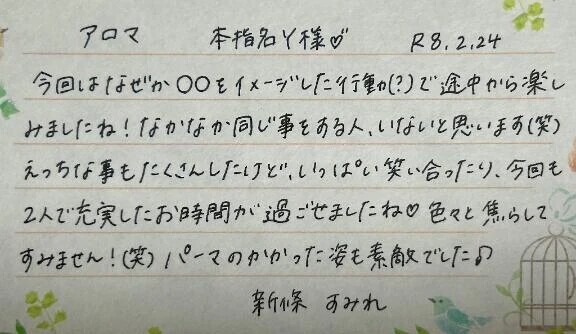 アロマ 本指名Y様♡ R8.2.24
今回はなぜか〇〇をイメージした行動(?)で途中から楽し
みましたね!なかなか同じ事をある人、いないと思います(笑)
えっちな事もたくさんしたけど、いっぱい笑い合ったり、今回も
2人で充実したお時間が過ごせましたね♡色々と焦らして
すみません!(笑)パーマのかかった姿も素敵でした♪
新條 すみれ